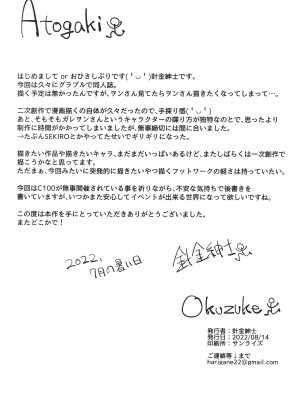 Atogaki
はじめまして or おひさしぶりです( '◡' )針金紳士です。
今回は久々にグラブルで同人誌。
描く予定は無かったんですが、サンさん見てたらサンさん描きたくなってしまって…。
二次創作で漫画描くの自体が久々だったので、手探り感( '◡' )
あと、そもそもガレヲンさんというキャラクターの喋り方が独特なのとで、思ったより
制作に時間がかかってしまいましたが、無事締切には間に合いました。
→たぶんSEKIROとかやってたせいでギリギリになった。
描きたい作品や描きたいキャラ、まだまだいっぱいあるけど、またしばらくは一次創作で
描こうかなと思ってます。
ただまぁ、今回みたいに突発的に描きたいやつ描くフットワークの軽さは持っていたい。
今回はC100が無事開催されている事を祈りながら、不安な気持ちで後書きを
書いていますが、いつかまた安心してイベントが出来る世界になって欲しいですね。
この度は本作を手にとっていただきありがとうございました。
またどこかで!
2022.
7月の暑い日
針金紳士
Okuzuke
発行者:針金紳士
発行日:2022/08/14
印刷所:サンライズ
ご連絡等↓まで
harigane22@gmail.com